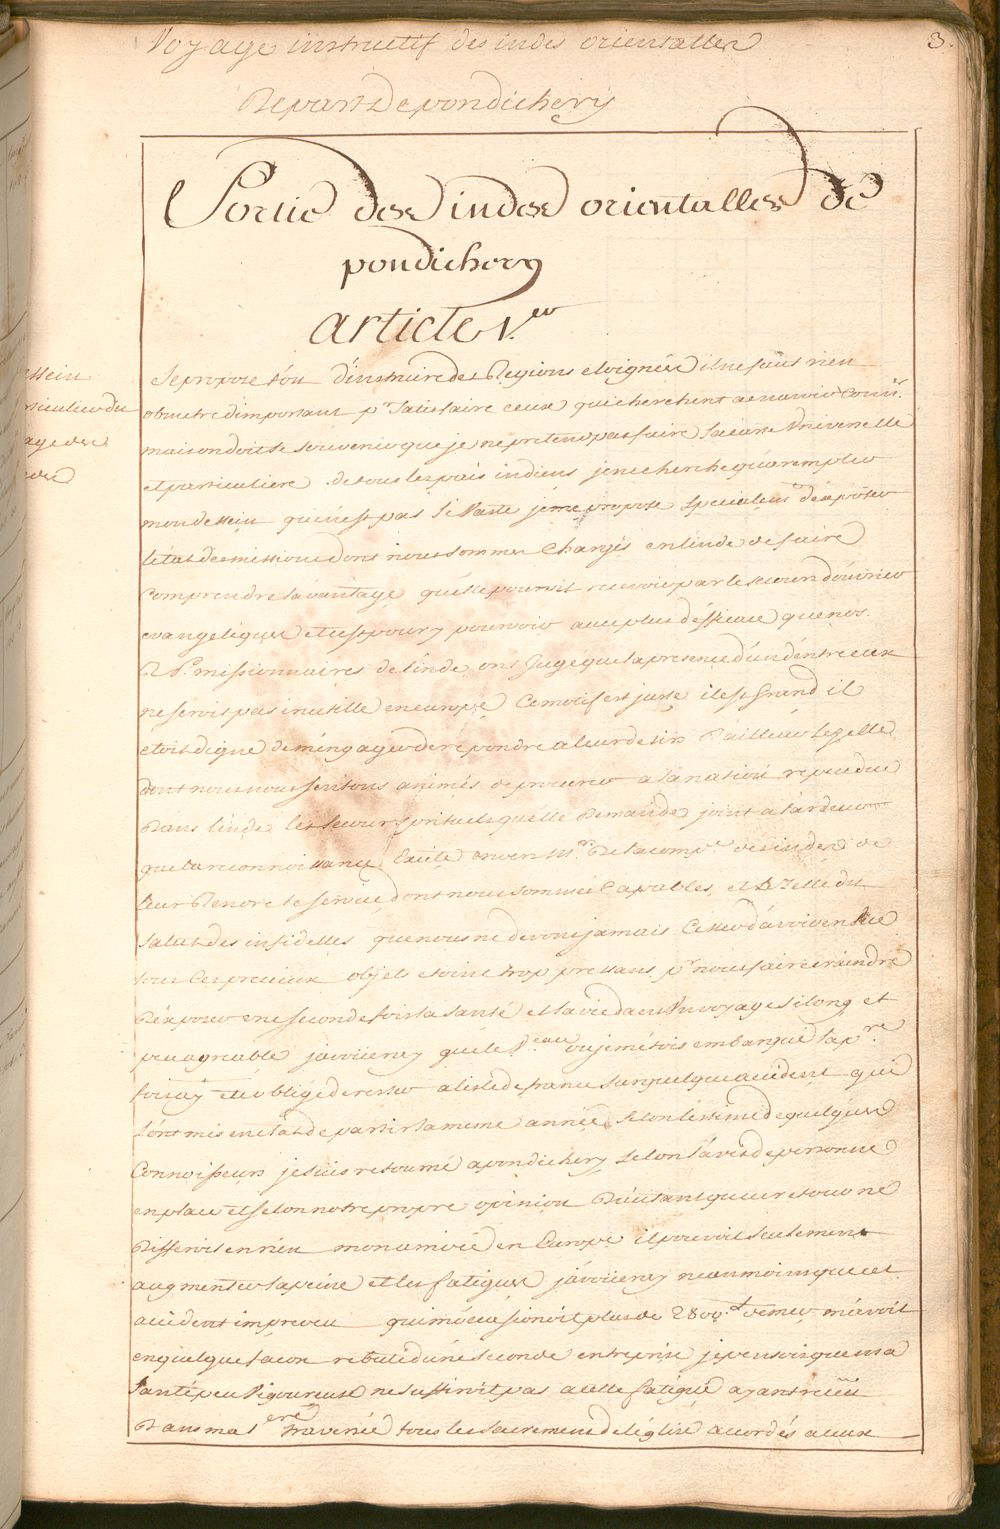 Voyage instructif des indes orientalles
3.
Depart De pondichery
Sortie des indes orientalles de
pondichery
article 1.er
Se propose t'on D'instruire des Regions eloignés il ne faut rien
obmettre d'important pr Satisfaire ceux qui cherchent a en avoir
mais on doit se souvenir que je ne pretend pas faire la carte Universelle
et particuliere de tous les païs indiens je ne cherche qu'a remplir
mon dessein qui n'est pas si Vaste je me propose specialemt d'exposer
l'état des missions dont nous sommes Chargés en l'inde de faire
Comprendre l'avantage qu'elle pourroit recevoir par le secours d'ouvriers
evangeliques et c'est pour y pourvoir avec plus d'éfficace que nos
R Ps missionnaires de l'inde ont Jugé que la presence d'un d'entre eux
ne seroit pas inutille en europe Ce motif est juste il est Grand il
etoit digne De mén̄ager de repondre a leur desir D'ailleurs le zelle
dont nous nous sentons animés de procurer a la nation repandue
Dans l'inde les secours spirituels qu'elle Demande joint a l'ardeur
que la reconnoissance Excite envers Mrs De la compe des indes de
leur Rendre le service dont nous sommes Capables, et le Zelle du
salut des infidelles que nous ne devons jamais Cesser d'avoir en
tous Ces precieux objets etoient trop pressans pr nous faire craindre
D'exposer une seconde fois la santé et la vie dans Un voyage si long et
peu agreable j'avoüeray que le Veau ou je m'etois embarqué la pre
fois ay eté obligé de rester a l'isle de france sur quelque accident qui
l'ont mis en etat de partir la meme année Selon l'estime de quelques
Connoisseurs je suis retourné a pondichery selon l'avis de personne
en place et selon notre propre opinion D'autant que ce retour ne
Differoit en rien mon arrivée en Europe il pouvoit seulement
augmenter la peine et les fatigues j'avoüeray neanmoins que cet
accident impreveu qui m'occasionoit plus de de mer m'avoit
en quelque facon rebuté d'une seconde entreprise je pensois que ma
santé peu Vigoureuse ne suffiroit pas a cette fatigue ayant recüe
Dans ma 1ere traversée tous les sacremens de l'église accordés a ceux